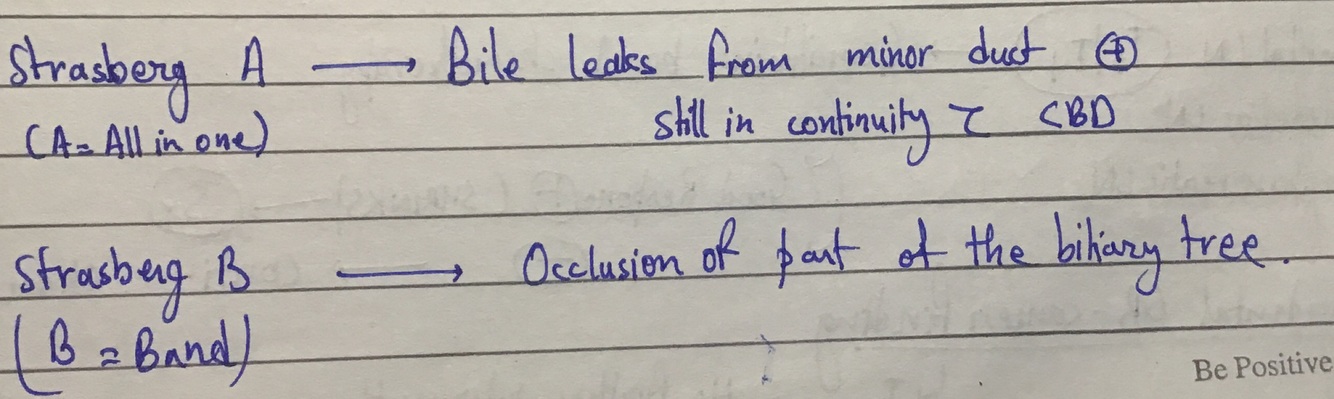 Strasberg A ⟶ Bile leaks from minor duct ⊕
(A = All in one) still in continuity c̄ CBD
Strasberg B ⟶ Occlusion of part of the biliary tree.
(B = Band)
Be Positive